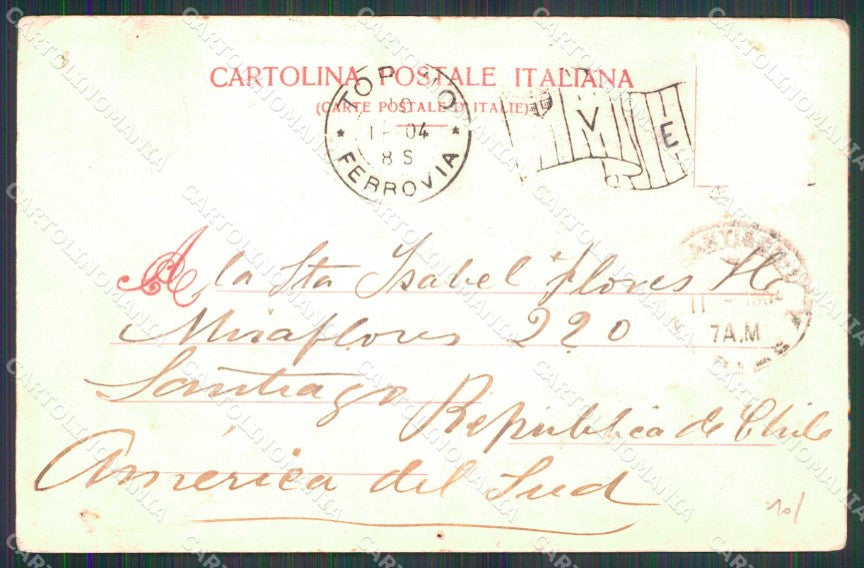 CARTOLINA POSTALE ITALIANA
(CARTE POSTALE D'ITALIE)
FERROVIA
04
8 S
V
E
A la Sta Isabel Flores H.
Miraflores 220
Santiago
República de Chile
América del Sud
11
1904
7 A.M
CARTOLINOMANIA